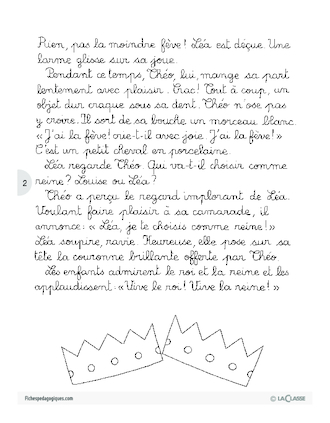 Rien, pas la moindre fève! Léa est déçue. Une
larme glisse sur sa joue.
Pendant ce temps, Théo, lui, mange sa part
lentement avec plaisir. Crac! Tout à coup, un
objet dur craque sous sa dent. Théo n'ose pas
y croire. Il sort de sa bouche un morceau blanc.
« J'ai la fève! crie-t-il avec joie. J'ai la fève! »
C'est un petit cheval en porcelaine.
Léa regarde Théo. Qui va-t-il choisir comme
reine? Louise ou Léa?
2
Théo a perçu le regard implorant de Léa.
Voulant faire plaisir à sa camarade, il
annonce: « Léa, je te choisis comme reine! »
Léa soupire, ravie. Heureuse, elle pose sur sa
tête la couronne brillante offerte par Théo.
Les enfants admirent le roi et la reine et les
applaudissent: « Vive le roi! Vive la reine! »
Fichespedagogiques.com
© LACLASSE